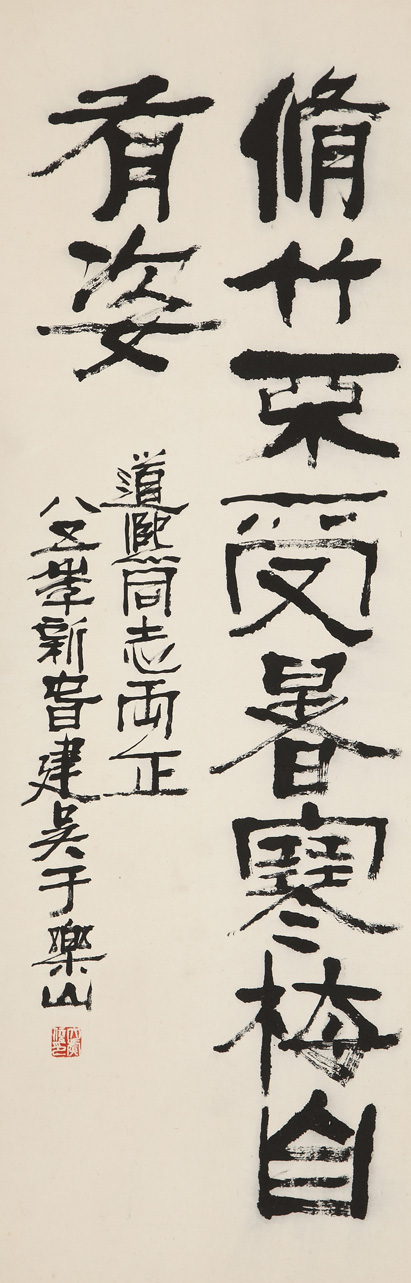 脩竹不受暑寒梅自
有姿
道熙同志両正
八五年新春建吴于樂山